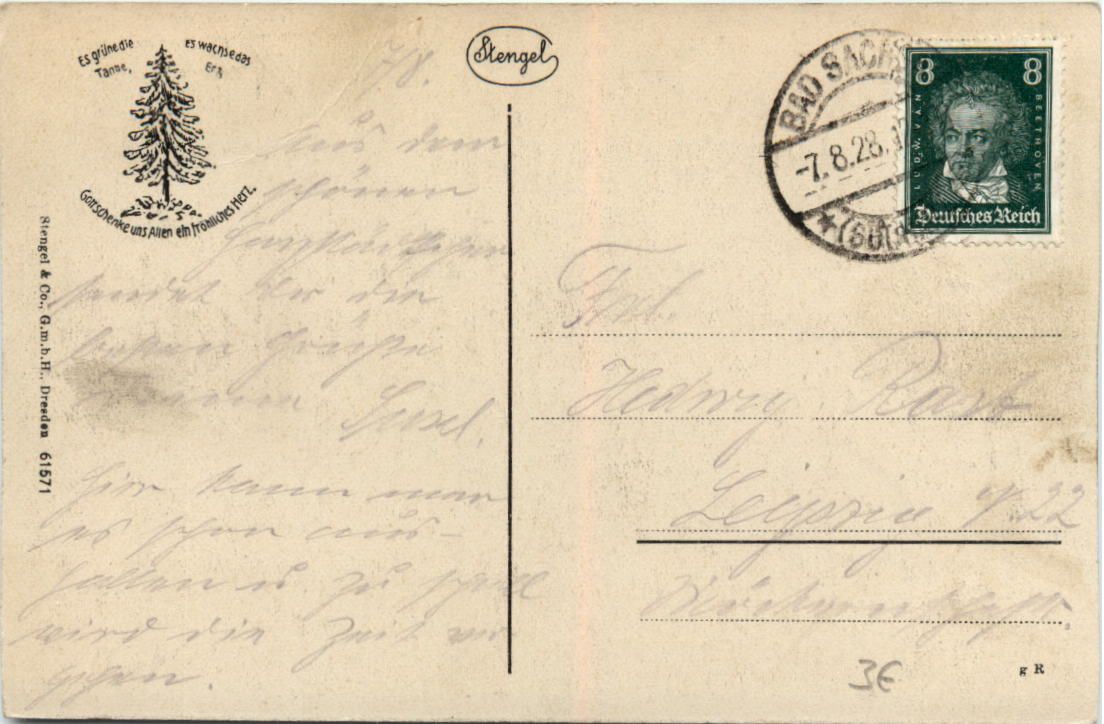 Es grüne die Tanne,
Es wachse das Erz,
Gott schenke uns Allen ein fröhliches Herz.
Stengel
BAD SACHSA
-7.8.28.
8 8
LUDW. VAN BEETHOVEN
Deutsches Reich
Stengel & Co., G.m.b.H., Dresden 61571
7/8.
Aus dem
schönen
sendet Dir die
besten Grüße
Hier kann man
es schon aus-
halten u. zu schnell
wird die Zeit ver
gehen.
Frl.
Hedwig
Leipzig 22
3€
g R